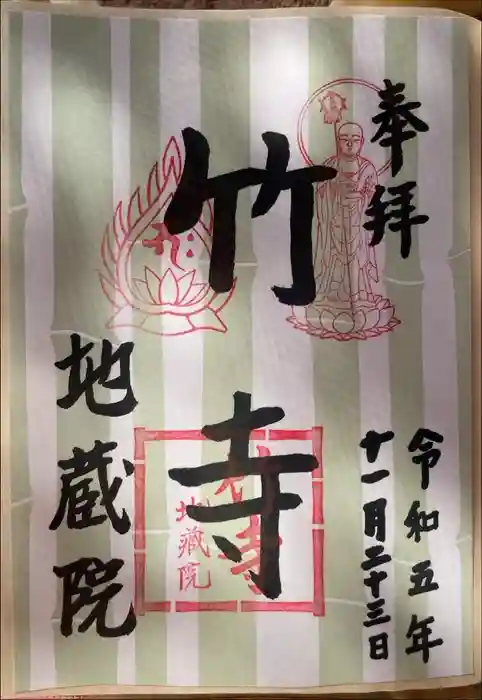 奉拝
令和五年
十一月二十三日
竹寺
地蔵院
竹寺
地藏院